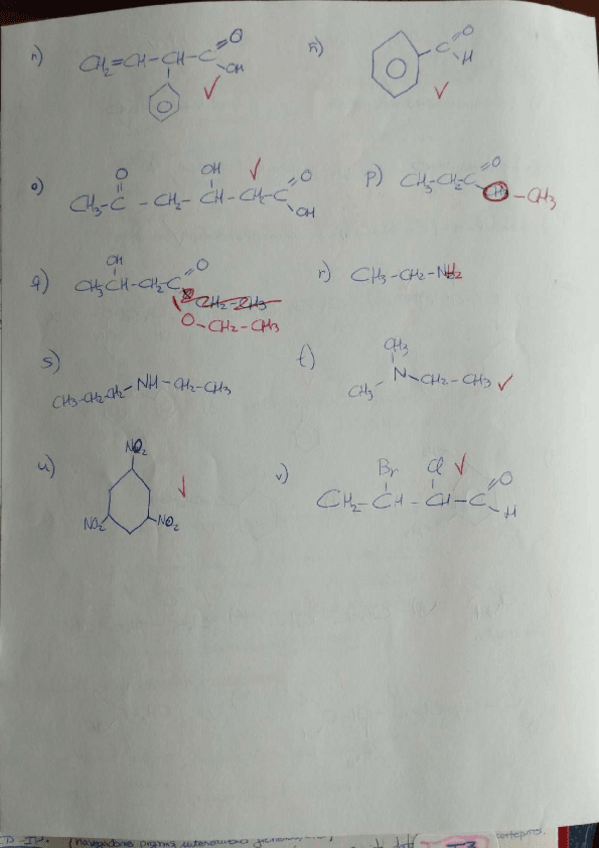 n) CH2=CH-CH-C=O
OH
ñ) C=O
H
OH
o) O
CH3-C-CH2-CH-CH-C=O
OH
p) CH3-CH2-C=O
-CH3
OH
q) CH3CH-CH2-C=O
CH2-CH3
O-CH2-CH3
r) CH3-CH2-NH2
s) CH3-CH2-CH2-NH-CH2-CH3
t) CH3
CH3 N-CH2-CH3
u) NO2
NO2 NO2
v) Br Cl
CH2-CH-CH-C=O
H